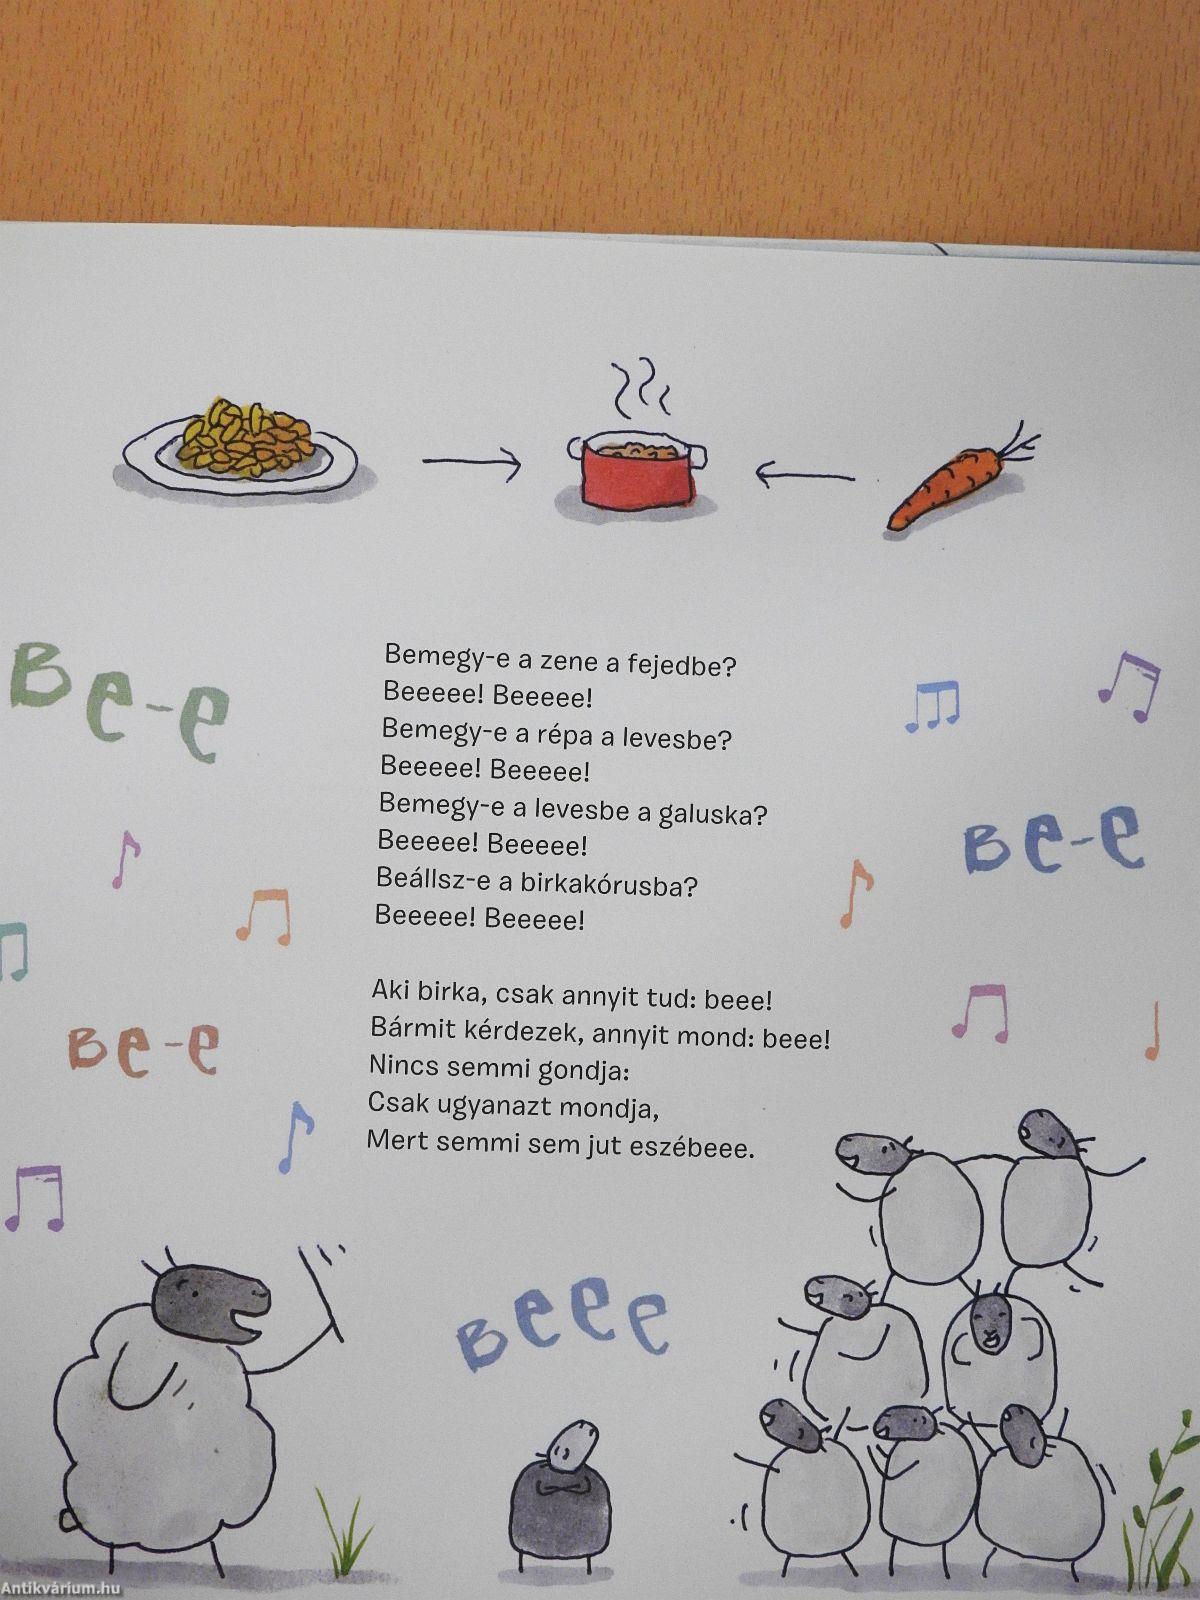 Be-e
Bemegy-e a zene a fejedbe?
Beeeee! Beeeee!
Bemegy-e a répa a levesbe?
Beeeee! Beeeee!
Bemegy-e a levesbe a galuska?
Beeeee! Beeeee!
Beállsz-e a birkakórusba?
Beeeee! Beeeee!
Be-e
Be-e
Aki birka, csak annyit tud: beee!
Bármit kérdezek, annyit mond: beee!
Nincs semmi gondja:
Csak ugyanazt mondja,
Mert semmi sem jut eszébeee.
Beeee
Antikvárium.hu